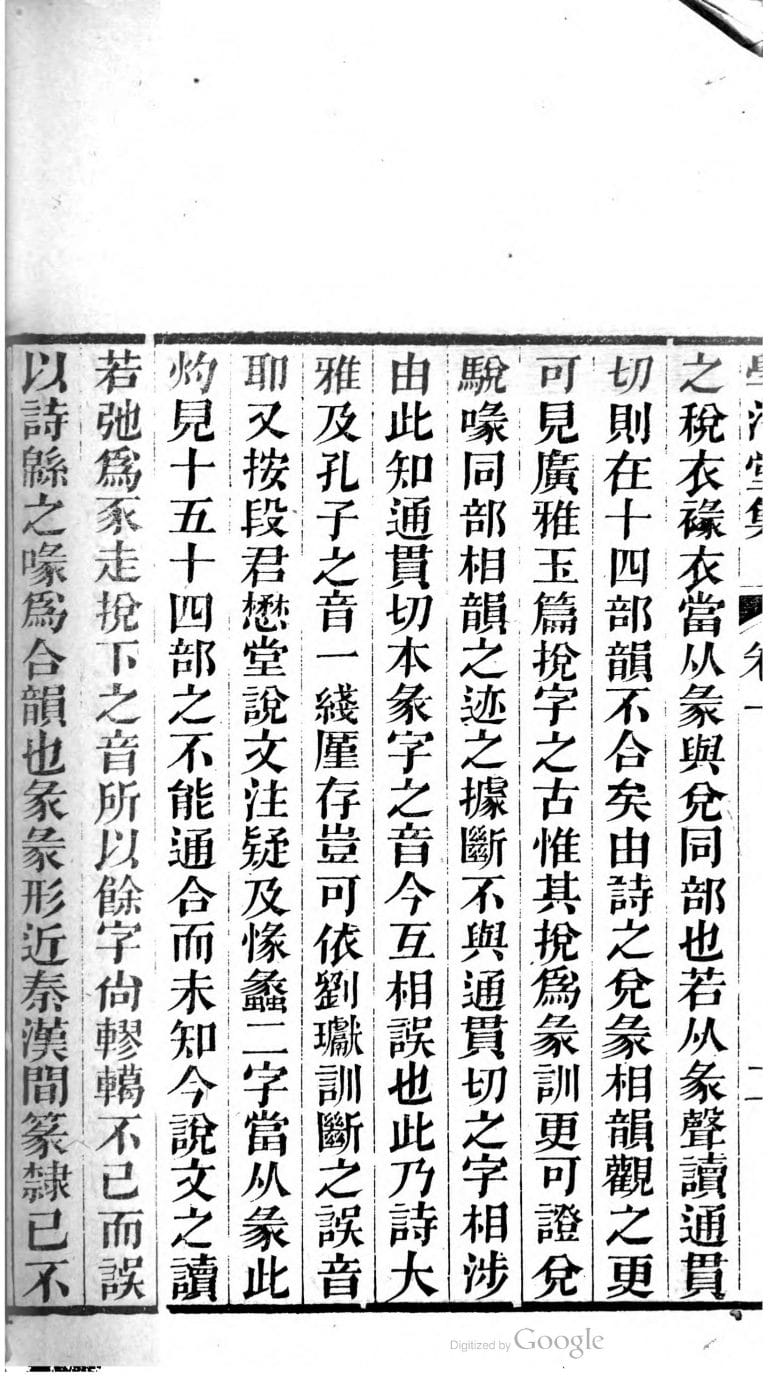 學海堂集 卷一 二
之稅衣褖衣當从彖與兌同部也若从彖聲讀通貫
切則在十四部韻不合矣由詩之兌彖相韻觀之更
可見廣雅玉篇挩字之古惟其挩爲彖訓更可證兌
駾喙同部相韻之迹之據斷不與通貫切之字相涉
由此知通貫切本彖字之音今互相誤也此乃詩大
雅及孔子之音一綫厪存豈可依劉瓛訓斷之誤音
耶又按段君懋堂說文注疑及㥟蠡二字當从彖此
灼見十五十四部之不能通合而未知今說文之讀
若弛爲豕走挩下之音所以餘字尙轇轕不已而誤
以詩緜之喙爲合韻也彖彖形近秦漢間篆隸已不
Digitized by Google